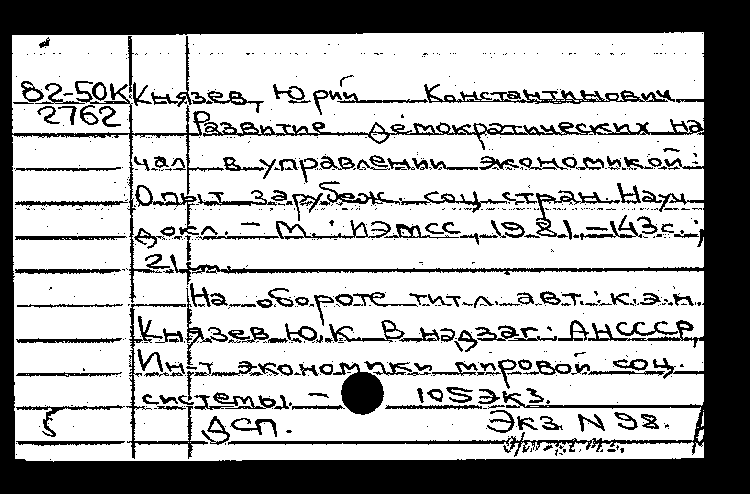 82-50К Князев, Юрий Константинович
2762
Развитие демократических на
чал в управлении экономикой:
Опыт зарубеж. соц. стран. Науч.
докл. - М.: ИЭМСС, 1981, -143с.;
21 см.
На обороте тит.л. авт.: к.э.н.
Князев Ю.К. В надзаг.: АНСССР,
Ин-т экономики мировой соц.
системы. - 105экз.
5 ДСП. Экз. N 98.